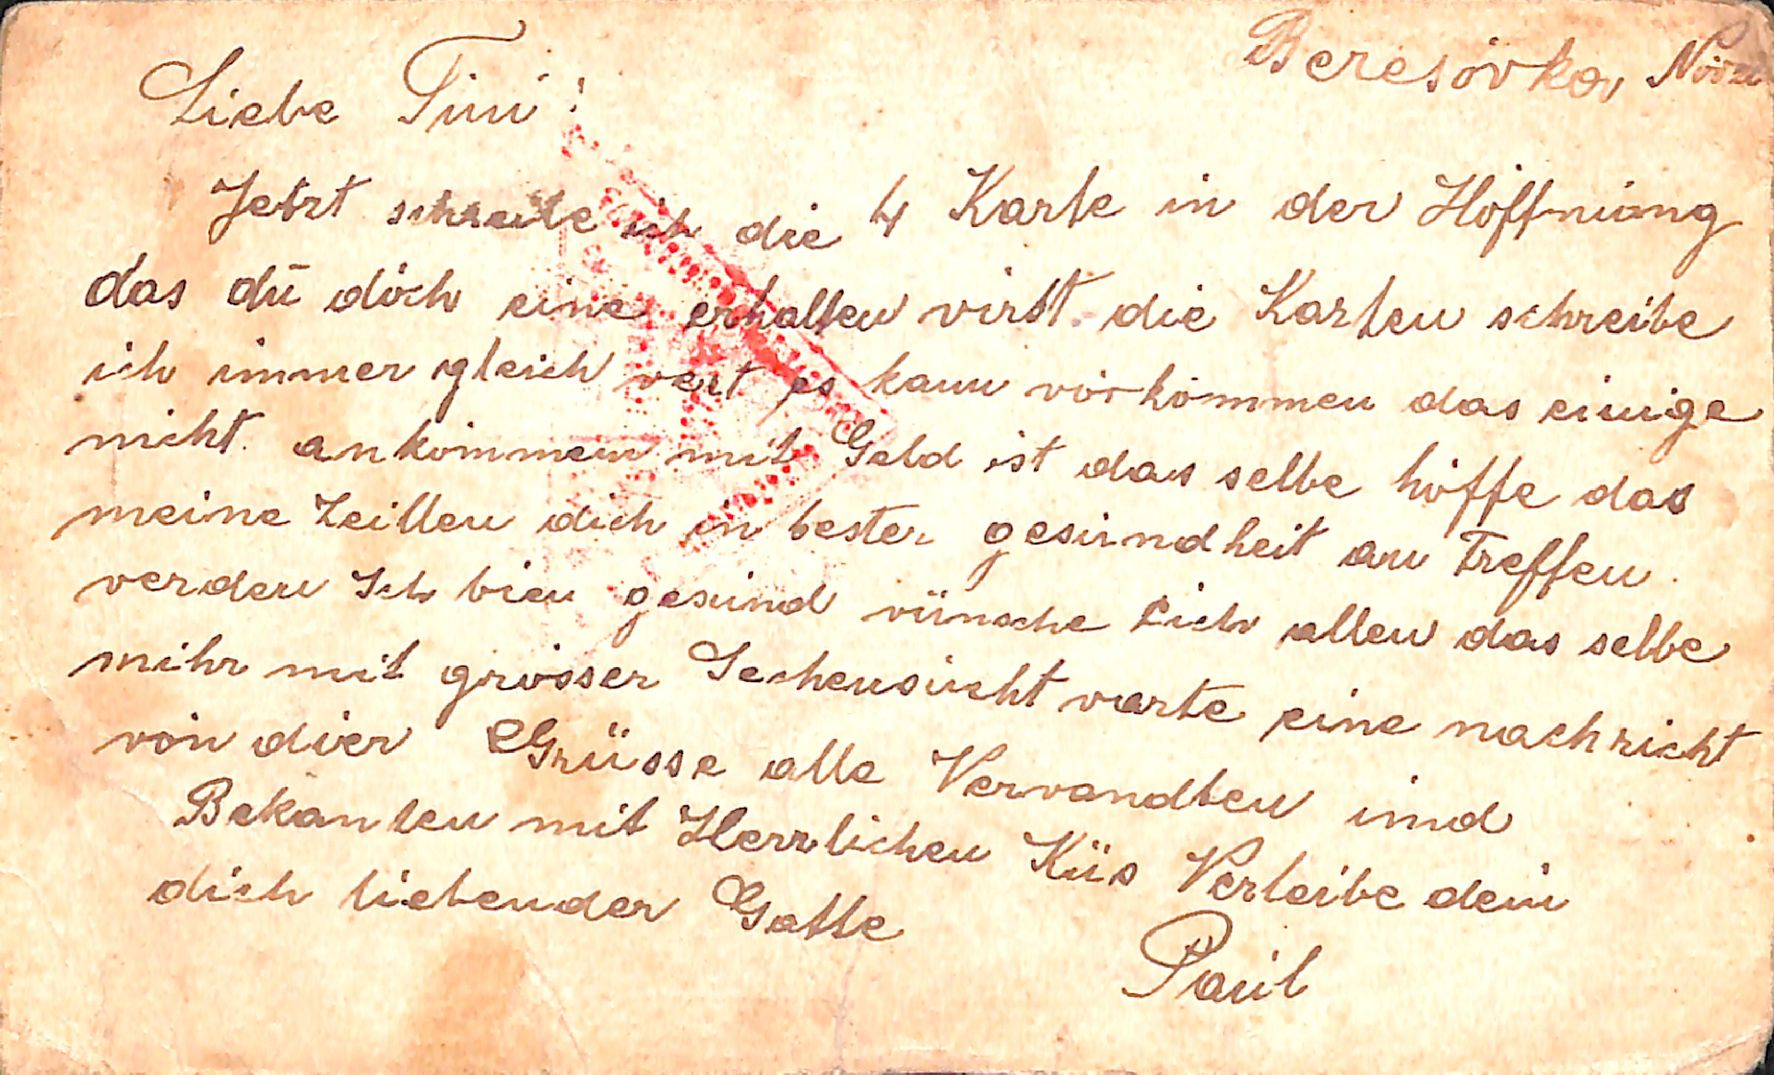 Beresovka, Nov
Liebe Tini!
Jetzt schreibe ich die 4 Karte in der Hoffnung
das du doch eine erhalten virst die Karten schreibe
ich immer gleich veit es kann vorkommen das einige
nicht ankommen mit Geld ist das selbe hoffe das
meine Zeillen dich in bester gesundheit an Treffen
verden Ich bien gesund vünsche Eich allen das selbe
mihr mit grosser Sehensucht varte eine nachricht
von dier Grüsse alle Vervandten und
Bekanten mit Herrlichen Küs Verleibe dein
dich liebender Gatte
Paul